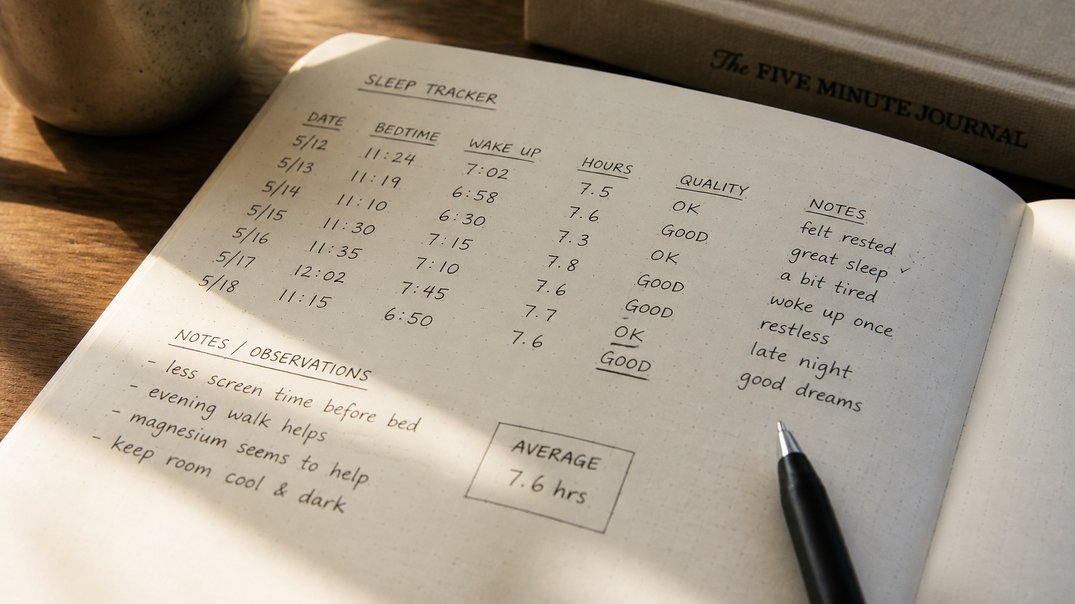 The FIVE MINUTE JOURNAL
SLEEP TRACKER
DATE BEDTIME WAKE UP HOURS QUALITY NOTES
5/12 11:24 7:02 7.5 OK felt rested
5/13 11:19 6:58 7.6 GOOD great sleep ✓
5/14 11:10 6:30 7.3 OK a bit tired
5/15 11:30 7:15 7.8 GOOD woke up once
5/16 11:35 7:10 7.6 GOOD restless
5/17 12:02 7:45 7.7 OK late night
5/18 11:15 6:50 7.6 GOOD good dreams
NOTES / OBSERVATIONS
- less screen time before bed
- evening walk helps
- magnesium seems to help
- keep room cool & dark
AVERAGE
7.6 hrs